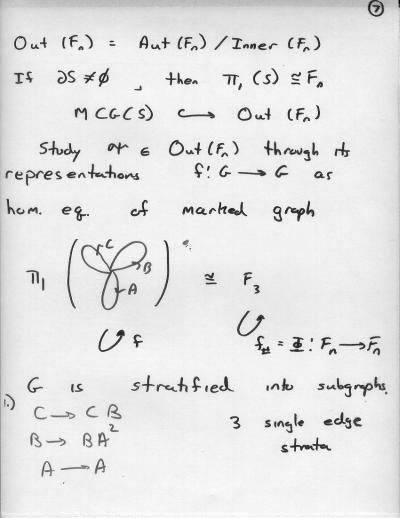 7
Out (Fn) = Aut (Fn) / Inner (Fn)
If ∂S ≠ ∅, then π₁ (S) ≅ Fn
MCG(S) ↪ Out (Fn)
Study ∈ Out (Fn) through its
representations f: G → G as
hom. eq. of marked graph
π₁ ( C B A ) ≅ F₃
f f# = Φ: Fn → Fn
G is stratified into subgraphs.
1.) C → CB
B → BA² 3 single edge
A → A strata